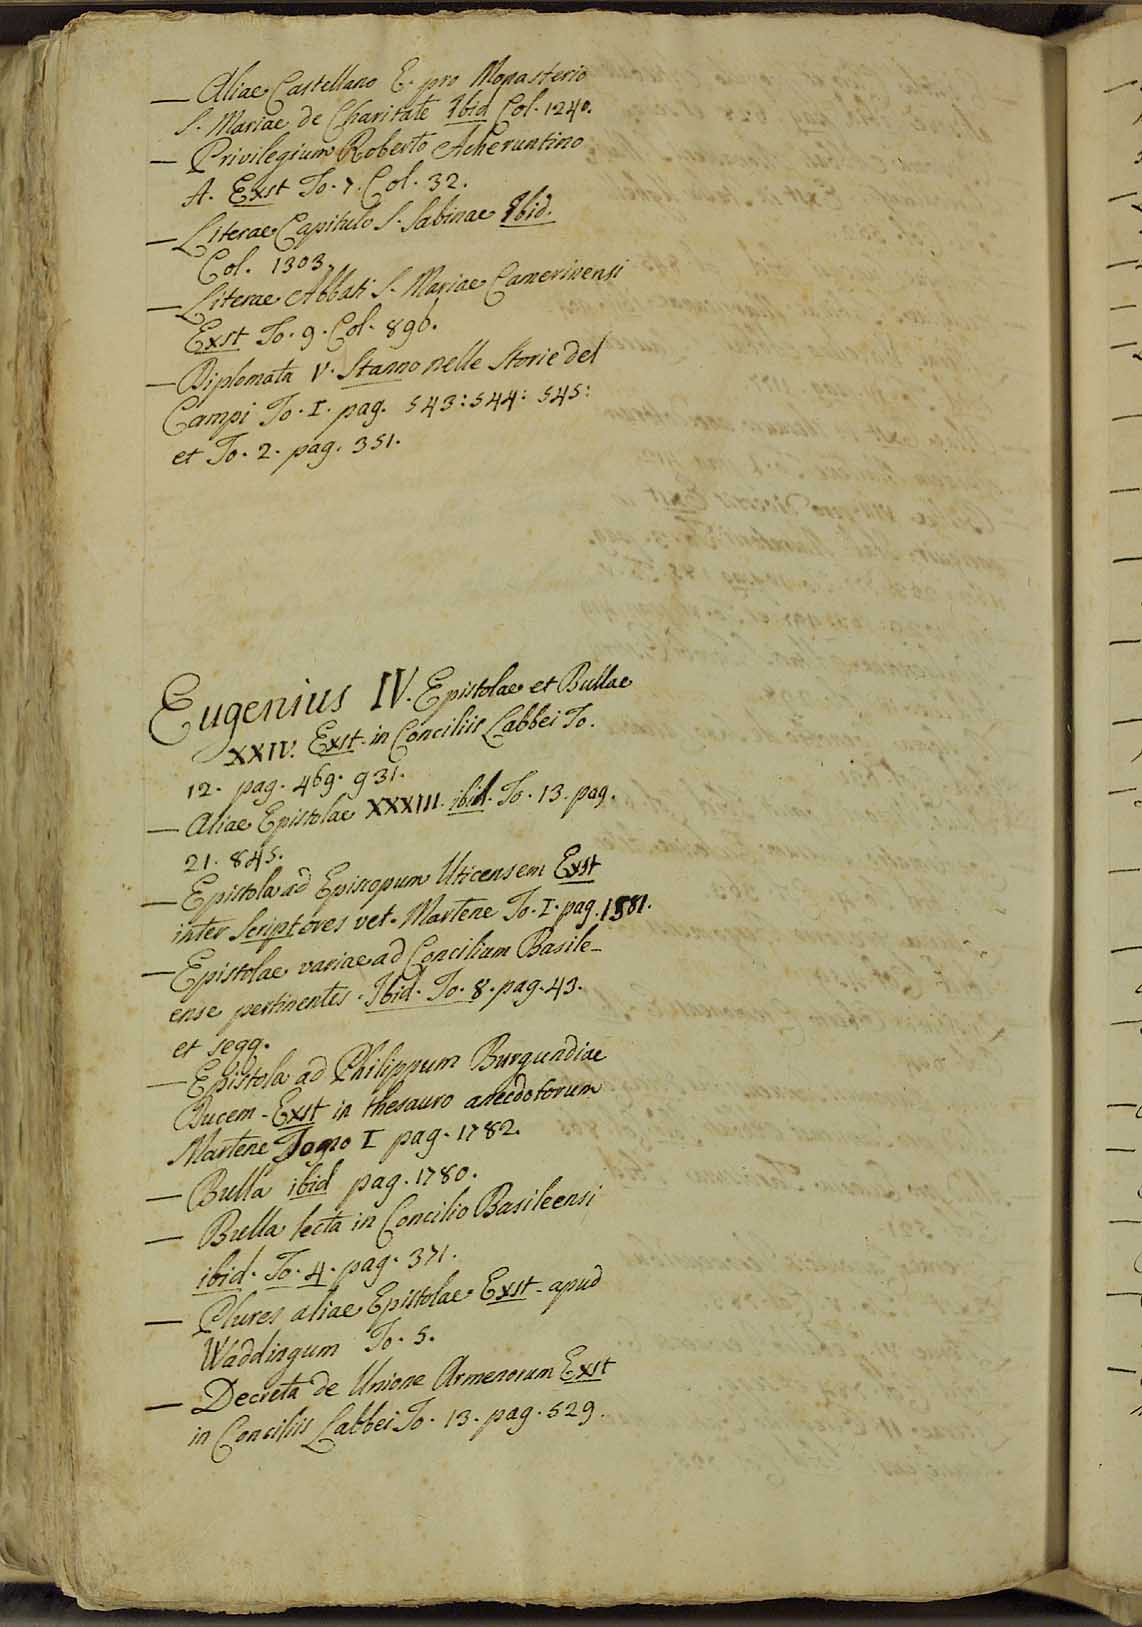 — Aliae Castellano E. pro Monasterio
S. Mariae de Charitate Ibid Col. 1240.
— Privilegium Roberto Acheruntino
A. Exst To. 7. Col. 32.
— Literae Capitulo S. Sabinae Ibid.
Col. 1303.
— Literae Abbati S. Mariae Camerinensi
Exst To. 9. Col. 890.
— Diplomata V. Stanno nelle Storie del
Campi To. I. pag. 543: 544: 545:
et To. 2. pag. 351.
Eugenius IV. Epistolae et Bullae
XXIV. Exst in Conciliis Labbei To.
12. pag. 469. 931.
— Aliae Epistolae XXXIII. ibid. To. 13. pag.
21. 845.
— Epistola ad Episcopum Uticensem Exst
inter Scriptores vet. Martene To. I. pag. 1581.
— Epistolae variae ad Concilium Basile-
ense pertinentes. Ibid. To. 8. pag. 43.
et segg.
— Epistola ad Philippum Burgundiae
Ducem - Exst in thesauro anecdotorum
Martene Tomo I pag. 1782.
— Bulla ibid pag. 1780.
— Bulla lecta in Concilio Basileensi
ibid. To. 4. pag. 371.
— Plures aliae Epistolae Exst - apud
Waddingum To. 5.
— Decreta de Unione Armenorum Exst
in Conciliis Labbei To. 13. pag. 529.